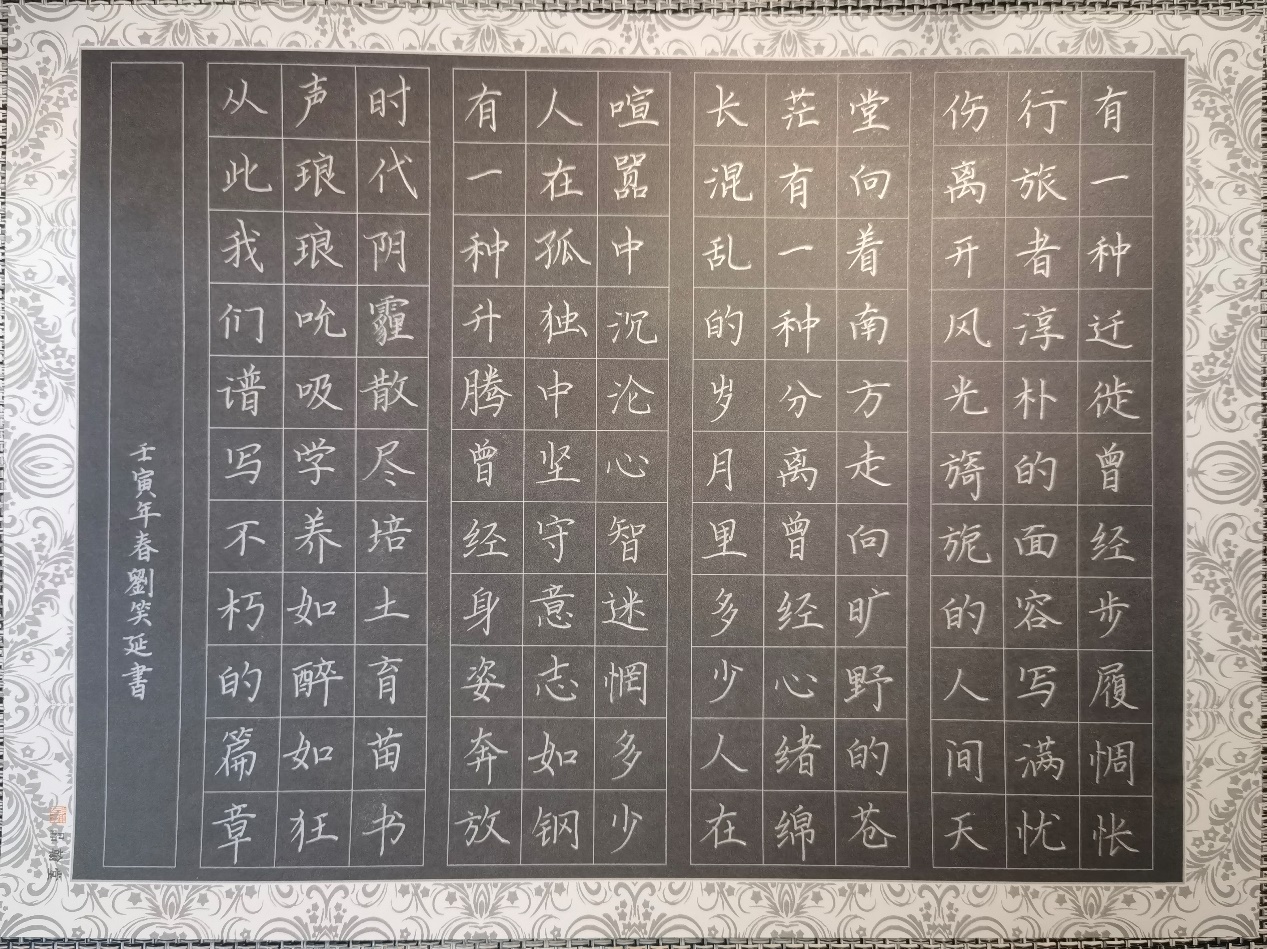 有一种迁徙曾经步履惆怅
行旅者淳朴的面容写满忧
伤离开风光旖旎的人间天
堂向着南方走向旷野的苍
茫有一种分离曾经心绪绵
长混乱的岁月里多少人在
喧嚣中沉沦心智迷惘多少
人在孤独中坚守意志如钢
有一种升腾曾经身姿奔放
时代阴霾散尽培土育苗书
声琅琅吮吸学养如醉如狂
从此我们谱写不朽的篇章
壬寅年春劉笑延書